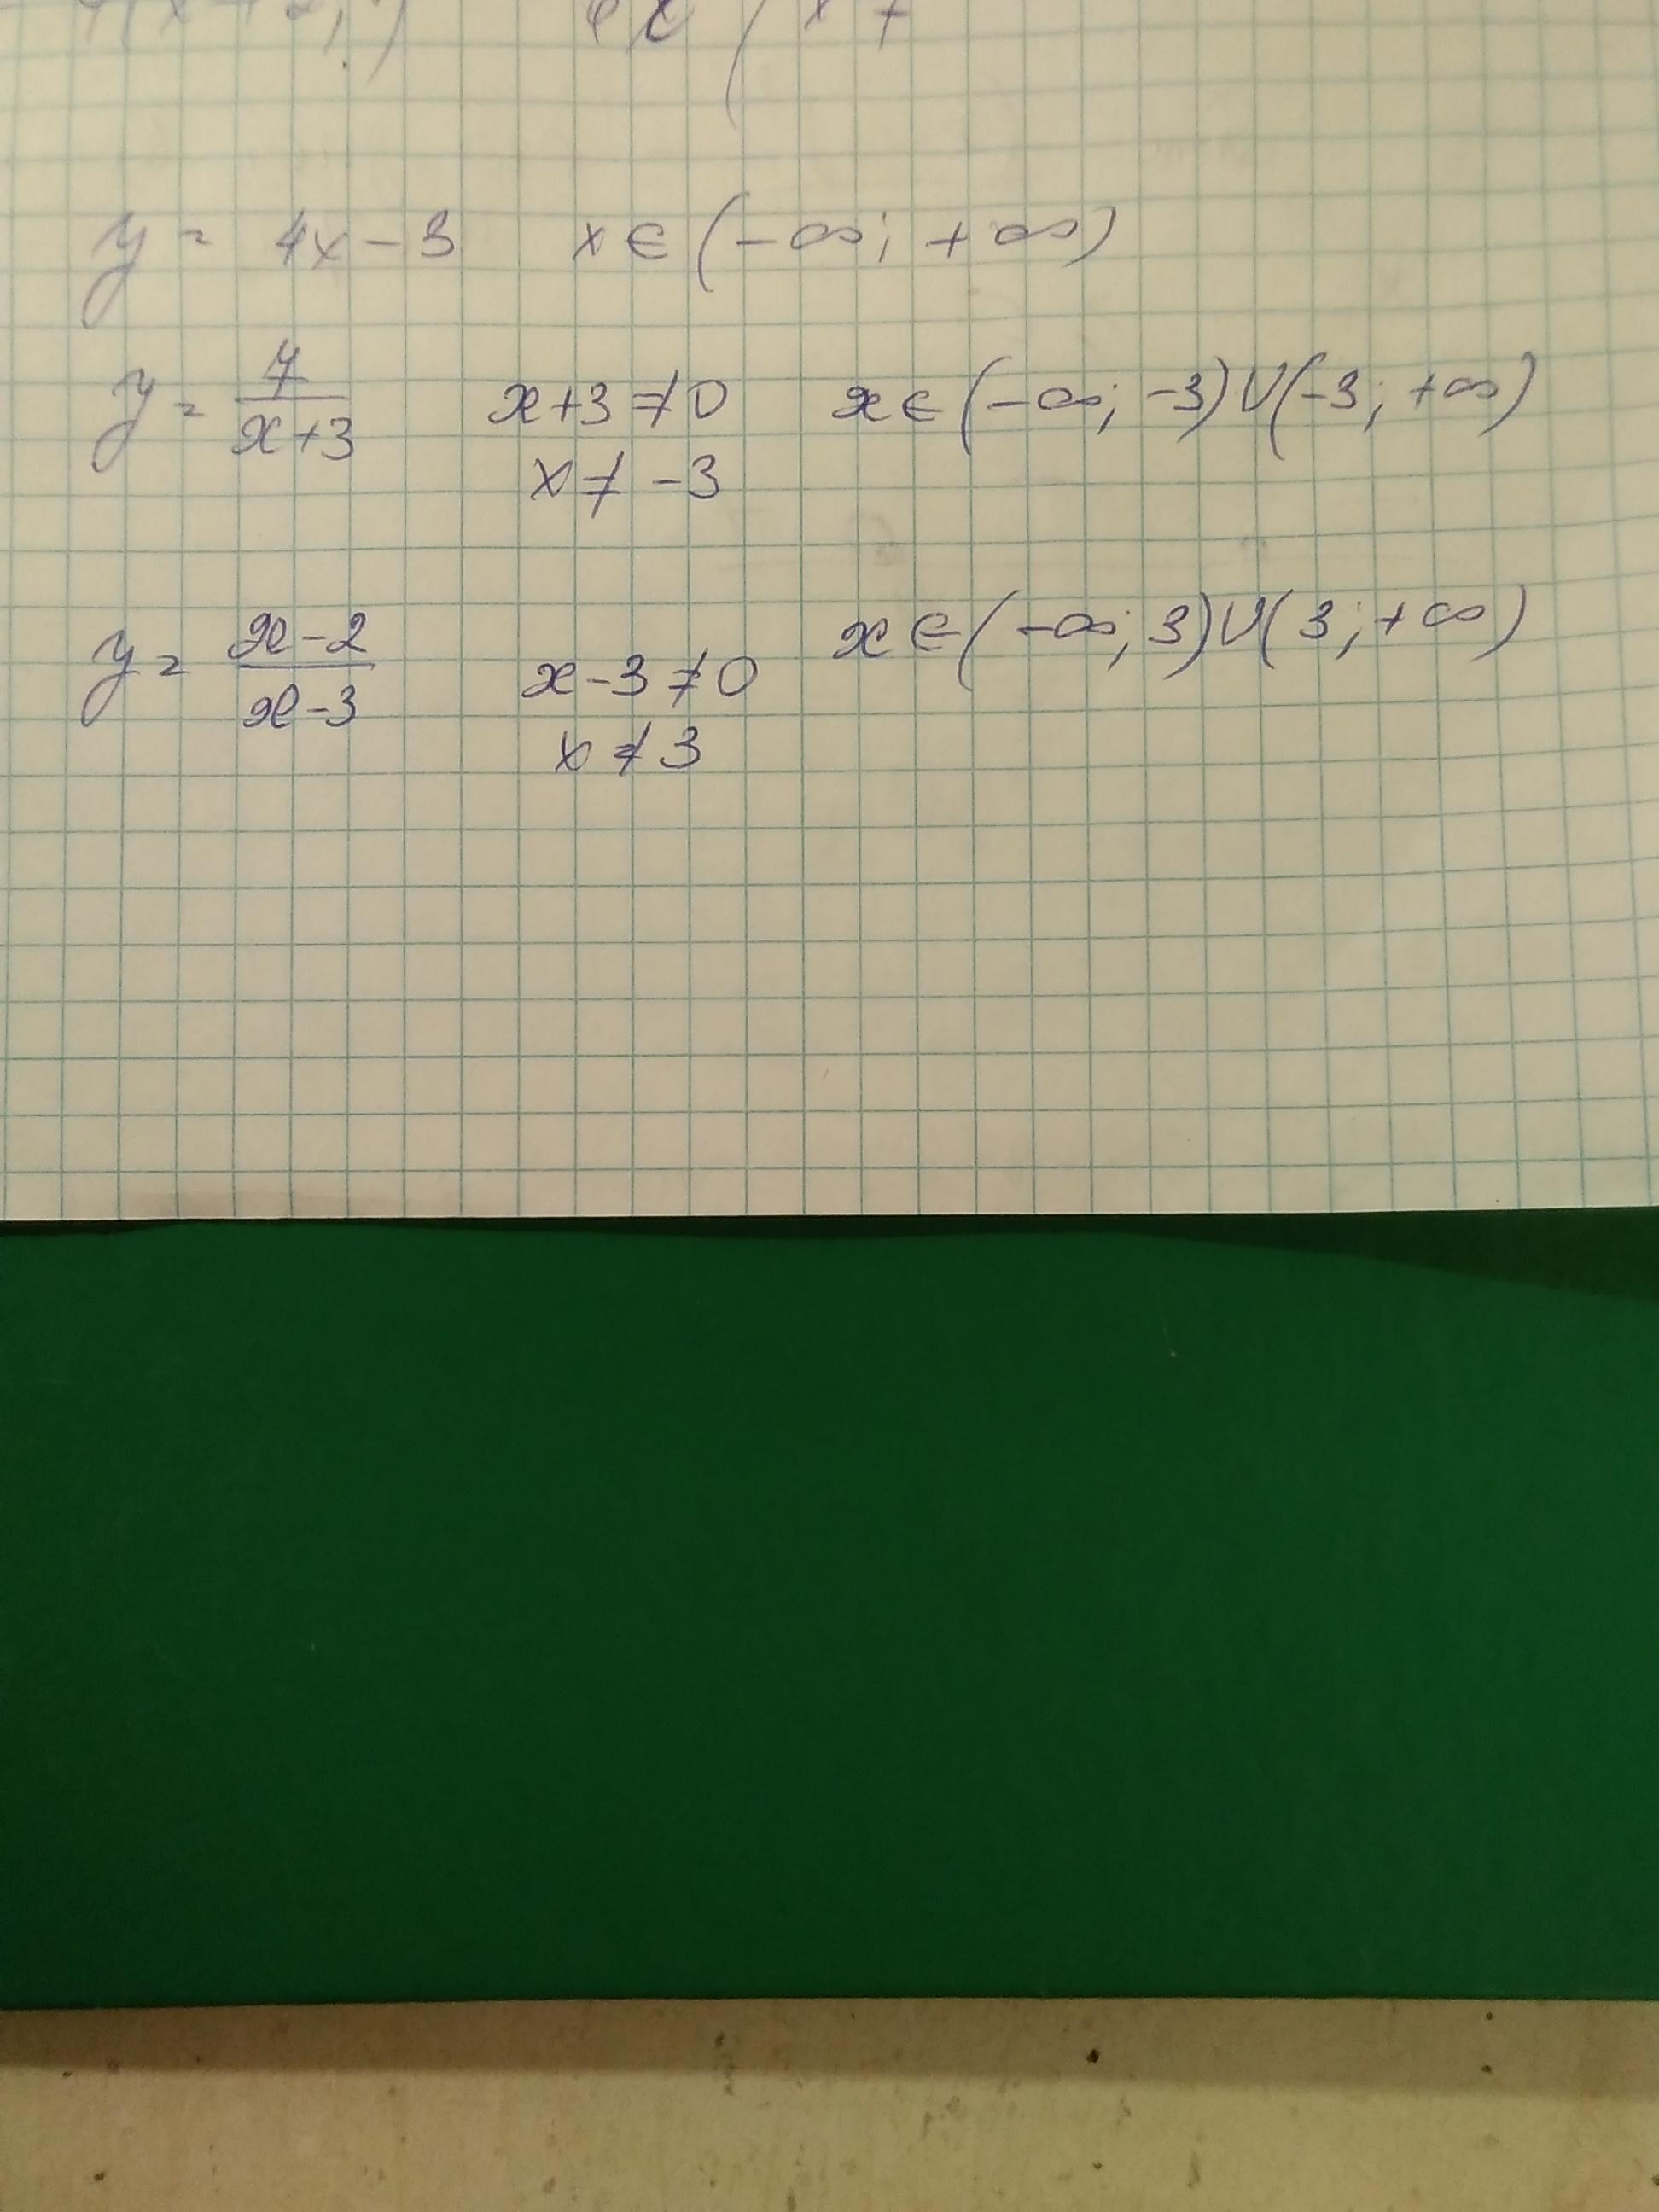 y = 4x - 3 x ∈ (-∞; +∞)
y = 7/(x+3) x+3 ≠ 0 x ∈ (-∞; -3) ∪ (-3; +∞)
x ≠ -3
y = (x-2)/(x-3) x-3 ≠ 0 x ∈ (-∞; 3) ∪ (3; +∞)
x ≠ 3